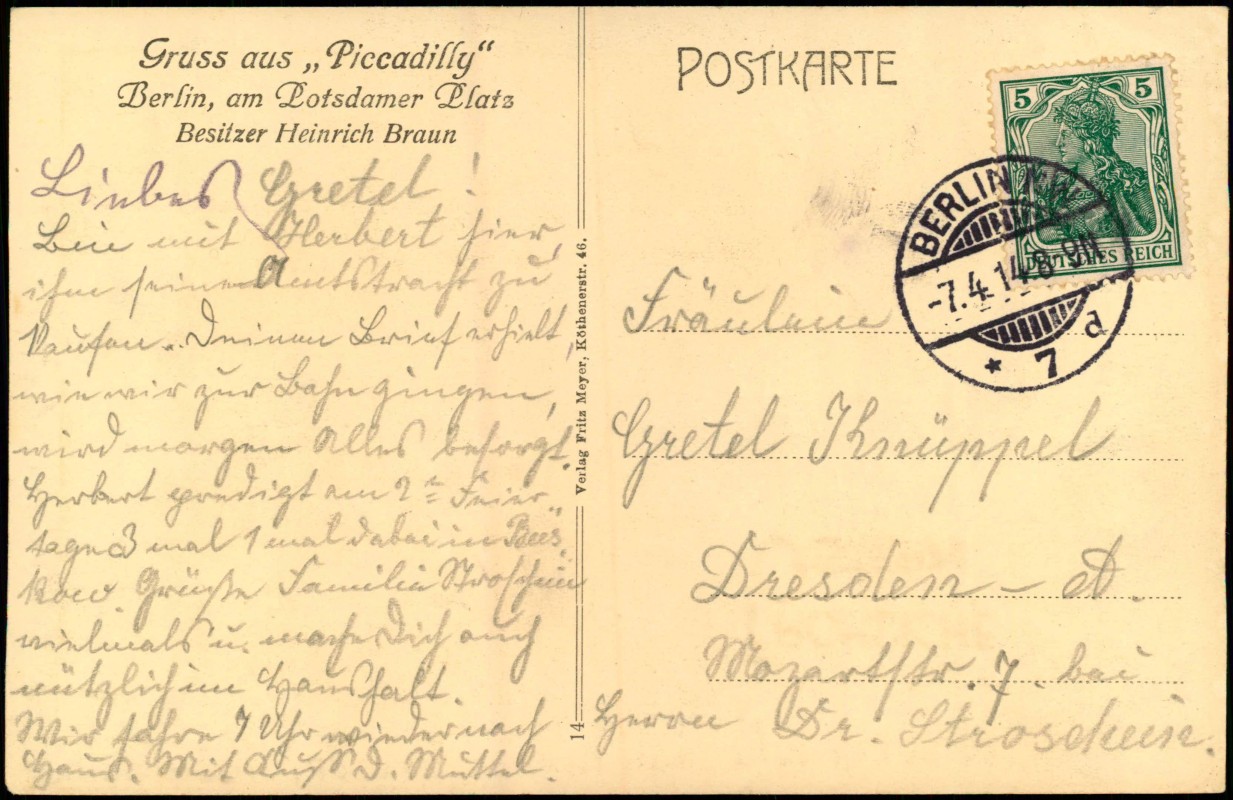 Gruss aus „Piccadilly“
Berlin, am Potsdamer Platz
Besitzer Heinrich Braun
Liebes Gretel!
Bin mit Herbert hier,
ihm seine Amtstracht zu
kaufen. Deinen Brief erhielt,
wie wir zur Bahn gingen,
wird morgen Alles besorgt.
Herbert predigt am 2ten Feier
tage 3 mal 1 mal dabei in Bees
kow. Grüße Familie Stroschein
vielmals u. mache Dich auch
nützlich im Haushalt.
Wir fahre 7 Uhr wieder nach
Haus. Mit Kuß D. Muttel.
14
Verlag Fritz Meyer, Köthenerstr. 46.
POSTKARTE
5 5
DEUTSCHES REICH
BERLIN NW
-7.4.14.8-9N
* 7 d
Fräulein
Gretel Knüppel
Dresden - A.
Mozartstr. 7. bei
Herrn Dr. Stroschein.